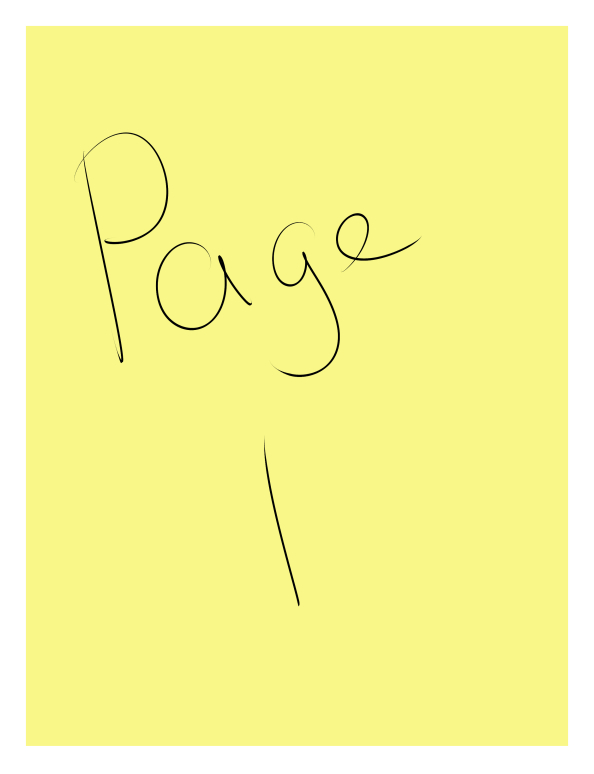 Page
1